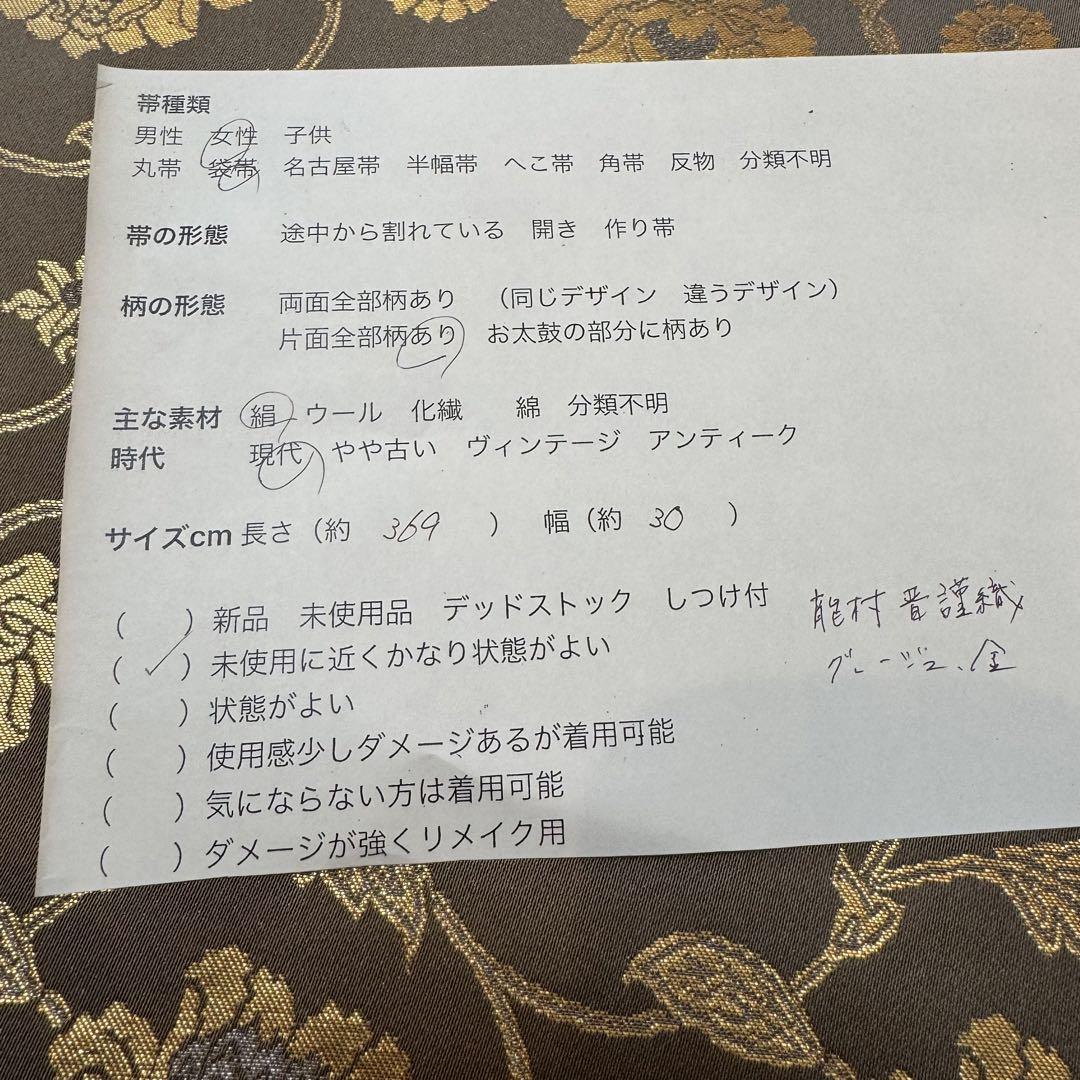 帯種類
男性 女性 子供
丸帯 袋帯 名古屋帯 半幅帯 へこ帯 角帯 反物 分類不明
帯の形態 途中から割れている 開き 作り帯
柄の形態 両面全部柄あり （同じデザイン 違うデザイン）
片面全部柄あり お太鼓の部分に柄あり
主な素材 絹 ウール 化繊 綿 分類不明
時代 現代 やや古い ヴィンテージ アンティーク
サイズcm 長さ（約 369 ） 幅（約 30 ）
（ ）新品 未使用品 デッドストック しつけ付
（✓）未使用に近くかなり状態がよい
（ ）状態がよい
（ ）使用感少しダメージあるが着用可能
（ ）気にならない方は着用可能
（ ）ダメージが強くリメイク用
龍村晋謹織
グレージュ、金